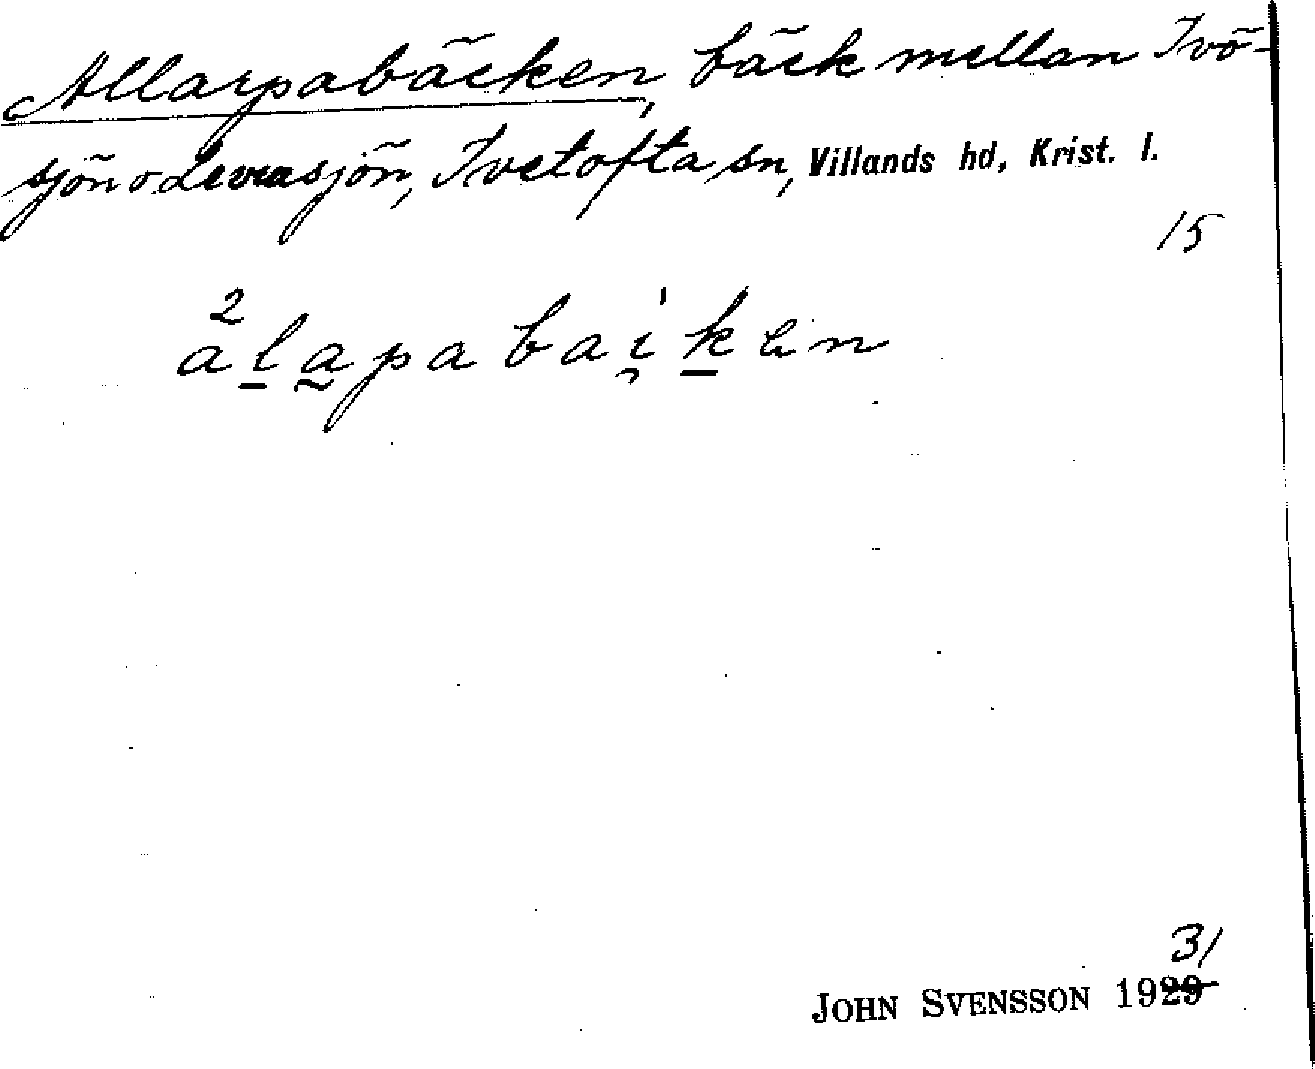 Allarpabäcken, bäck mellan Ivö-
sjön o Levrasjön, Ivetofta sn, Villands hd, Krist. l.
15
2
alapabaiken
31
JOHN SVENSSON 1929